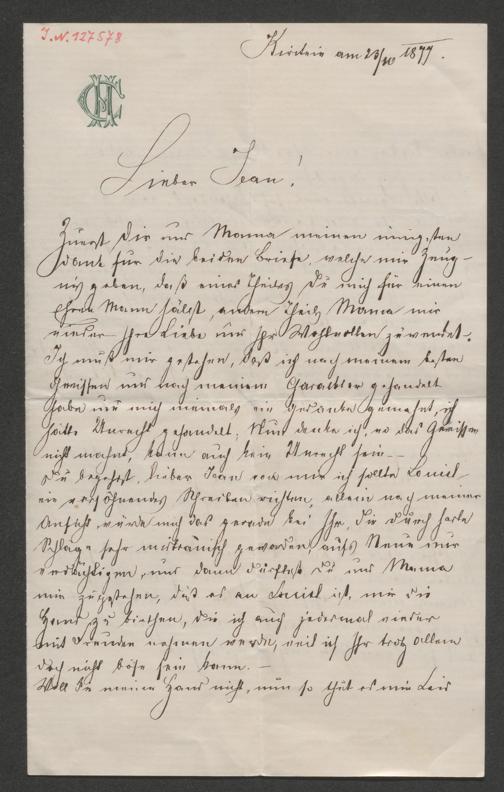 J.N. 127578
am 23/10 1877.
Lieber Jean!
Zuerst Dir und Mama meinen innigsten
Dank für die beiden Briefe, welche mir Zeug-
niß geben, daß eines Theiles Du mich für einen
Ehren Mann hältst, andern Theils Mama mir
wieder Ihre Liebe und Ihr Wohlwollen zuwendet.
Ich muß mir gestehen, daß ich nach meinem besten
Gewissen und nach meinem Charackter gehandelt
habe und mich niemals ein Gedanke gemahnt, ich
hätte Unrecht gehandelt; Nun denke ich, wo das Gewissen
nicht mahnt, kann auch kein Unrecht sein. –
Du begehrst, lieber Jean von mir ich sollte Louise
ein versöhnendes Schreiben richten, allein nach meiner
Ansicht würde mich das gerade bei Ihr, die durch harte
Schläge sehr mißtrauisch geworden, aufs Neue nur
verdächtigen, und dann dürftest Du und Mama
mir zugestehen, daß es an Louise ist, mir die
Hand zu biethen, die ich auch jedesmal wieder
mit Freuden nehmen werde, weil ich Ihr trotz allem
doch nicht böse sein kann. –
Will Sie meine Hand nicht, nun so thut es mir Leid